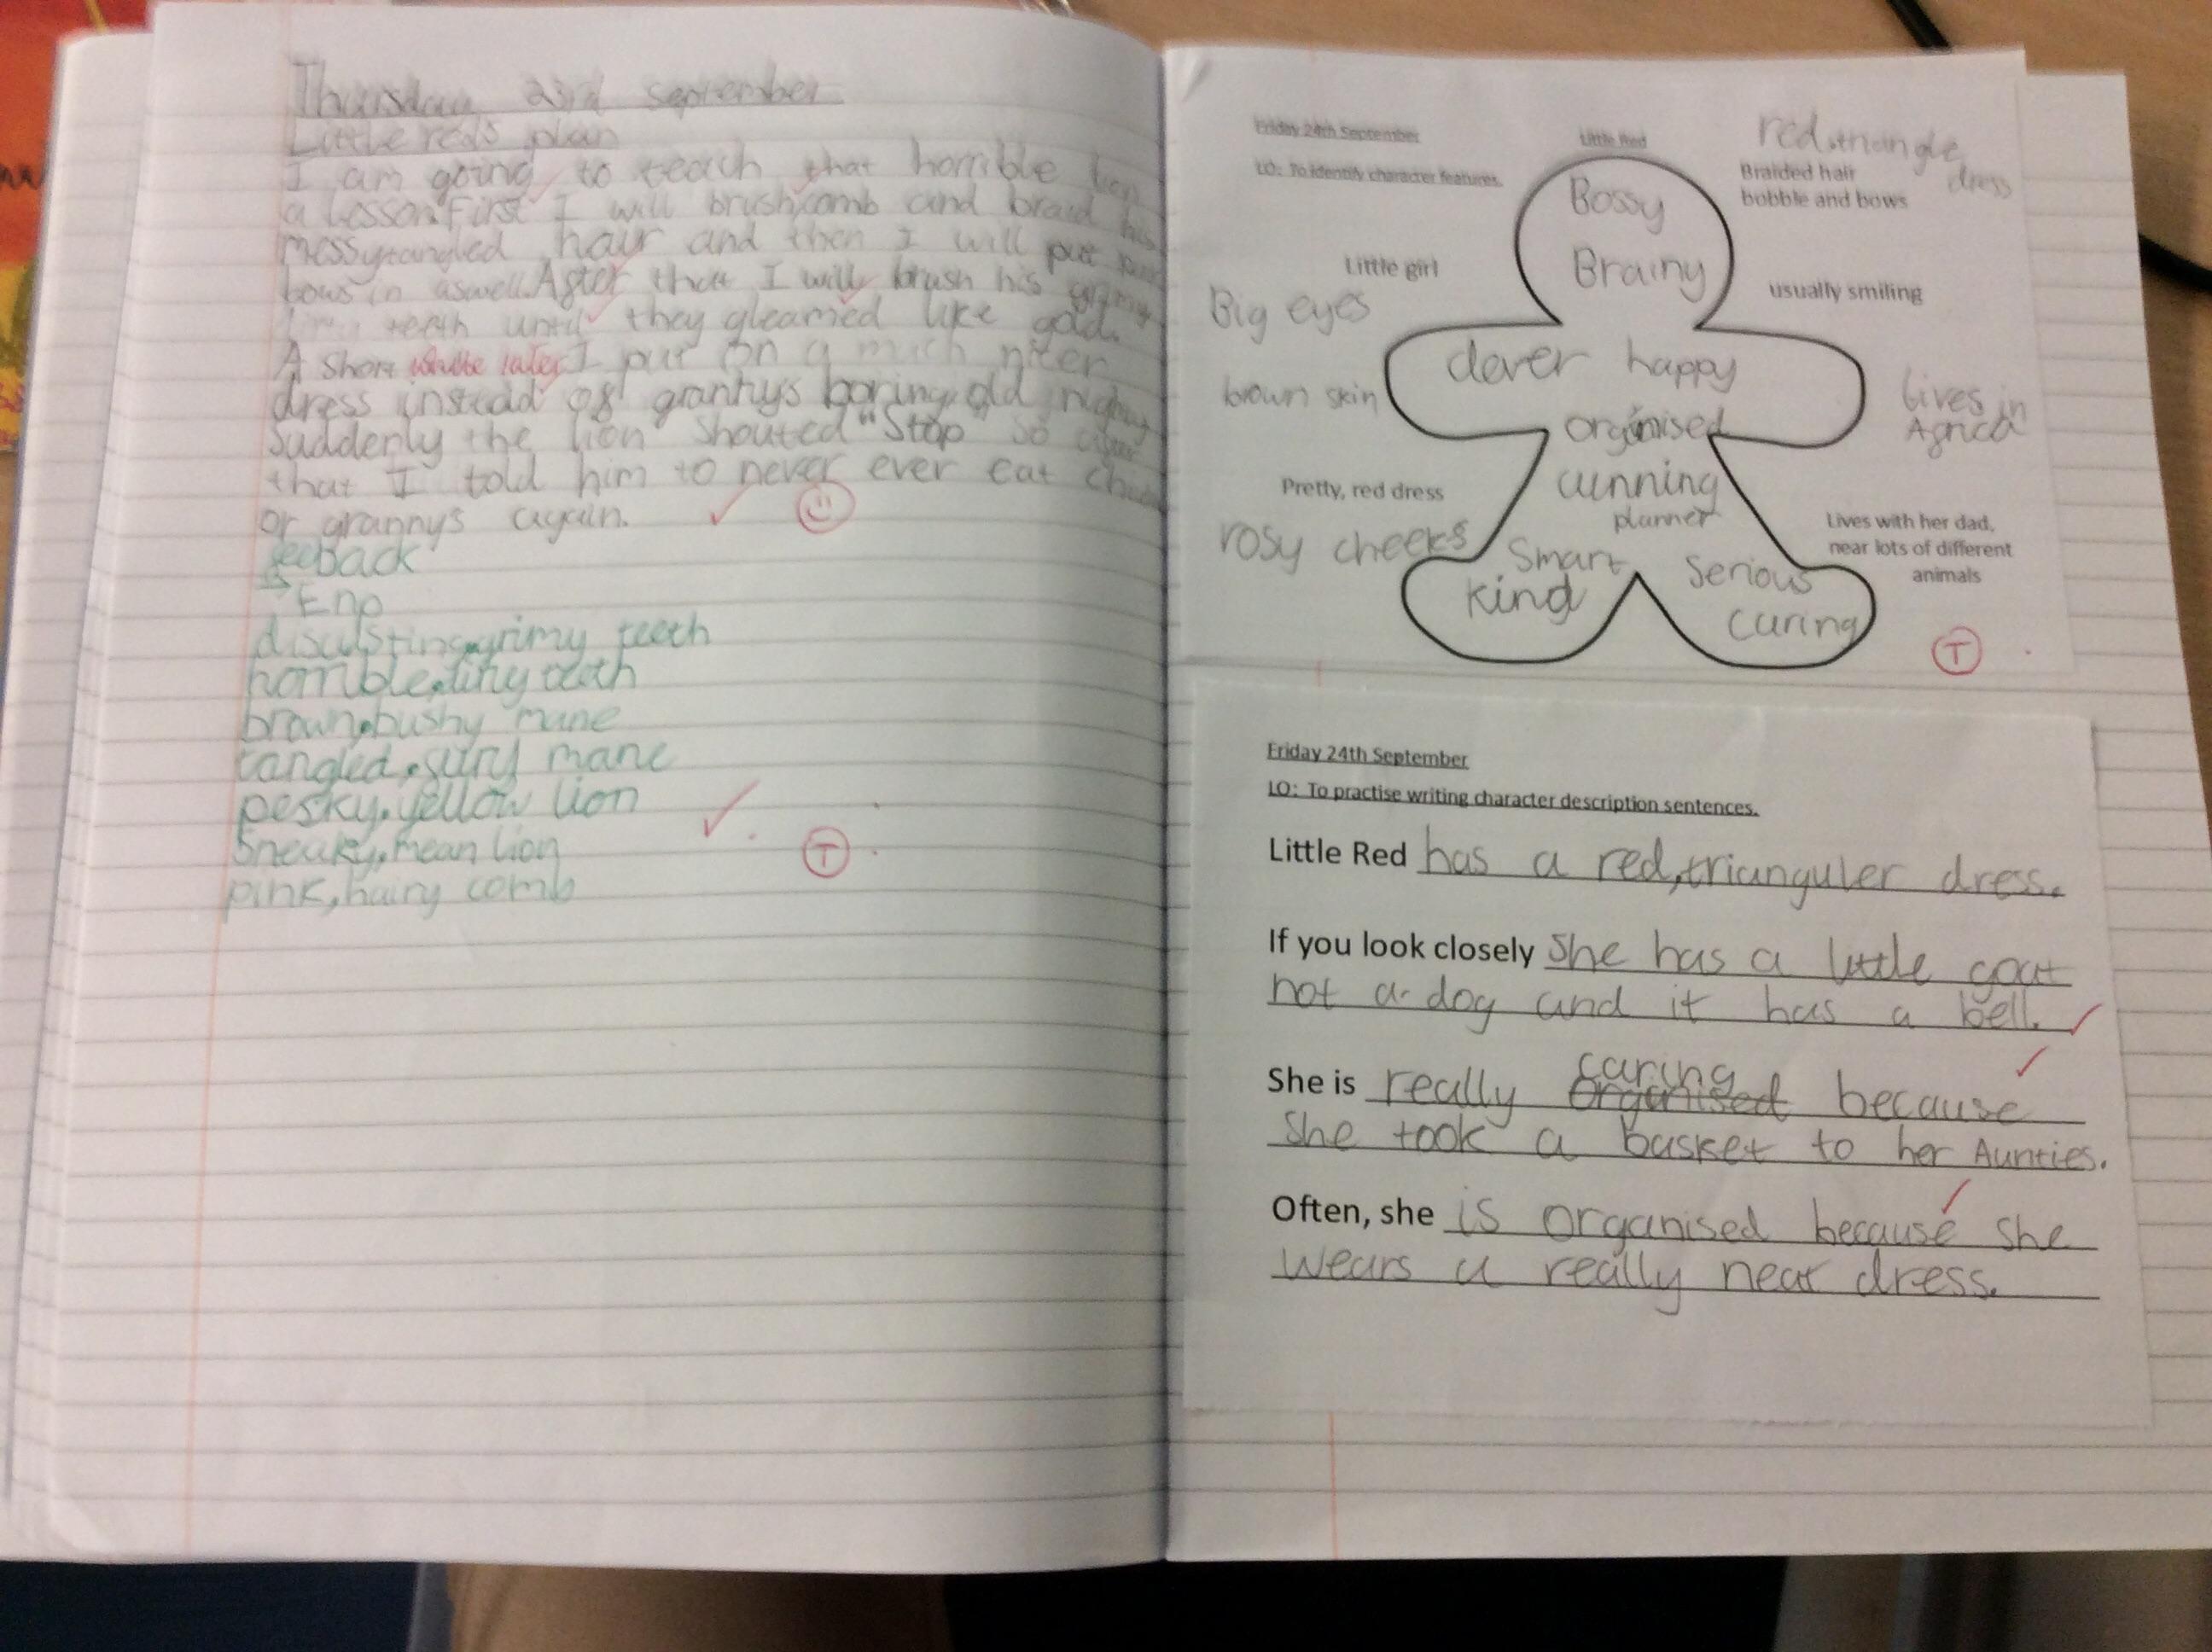 Thursday 23rd September
Little red's plan
I am going to teach that horrible lion
a lesson.First I will brush,comb and braid his
messytangled hair and then I will put
bows in aswell.After that I will brush his grimy
teeth until they gleamed like gold.
A short while later I put on a much nicer
dress instead of granny's boring,old nighty
Suddenly the lion shouted "Stop" so after
that I told him to never ever eat
or grannys again.
feeback
Enp
discusting,grimy teeth
horrible,tiny teeth
brown,bushy mane
tangled, mane
pesky,yellow lion
Sneaky,mean lion
pink,hairy comb
T
Friday 24th September
LO: To identify character features.
Little Red
red,triangle dress
Braided hair
bobble and bows
Bossy
Brainy
Little girl
usually smiling
Big eyes
clever happy
brown skin
lives in
Africa
organised
cunning
planner
Pretty, red dress
rosy cheeks
Lives with her dad,
near lots of different
animals
Smart
kind
Serious
caring
T
Friday 24th September
LO: To practise writing character description sentences.
Little Red has a red,trianguler dress.
If you look closely she has a little goat
not a dog and it has a bell.
She is really organised caring because
she took a basket to her Aunties.
Often, she is organised because she
wears a really neat dress.